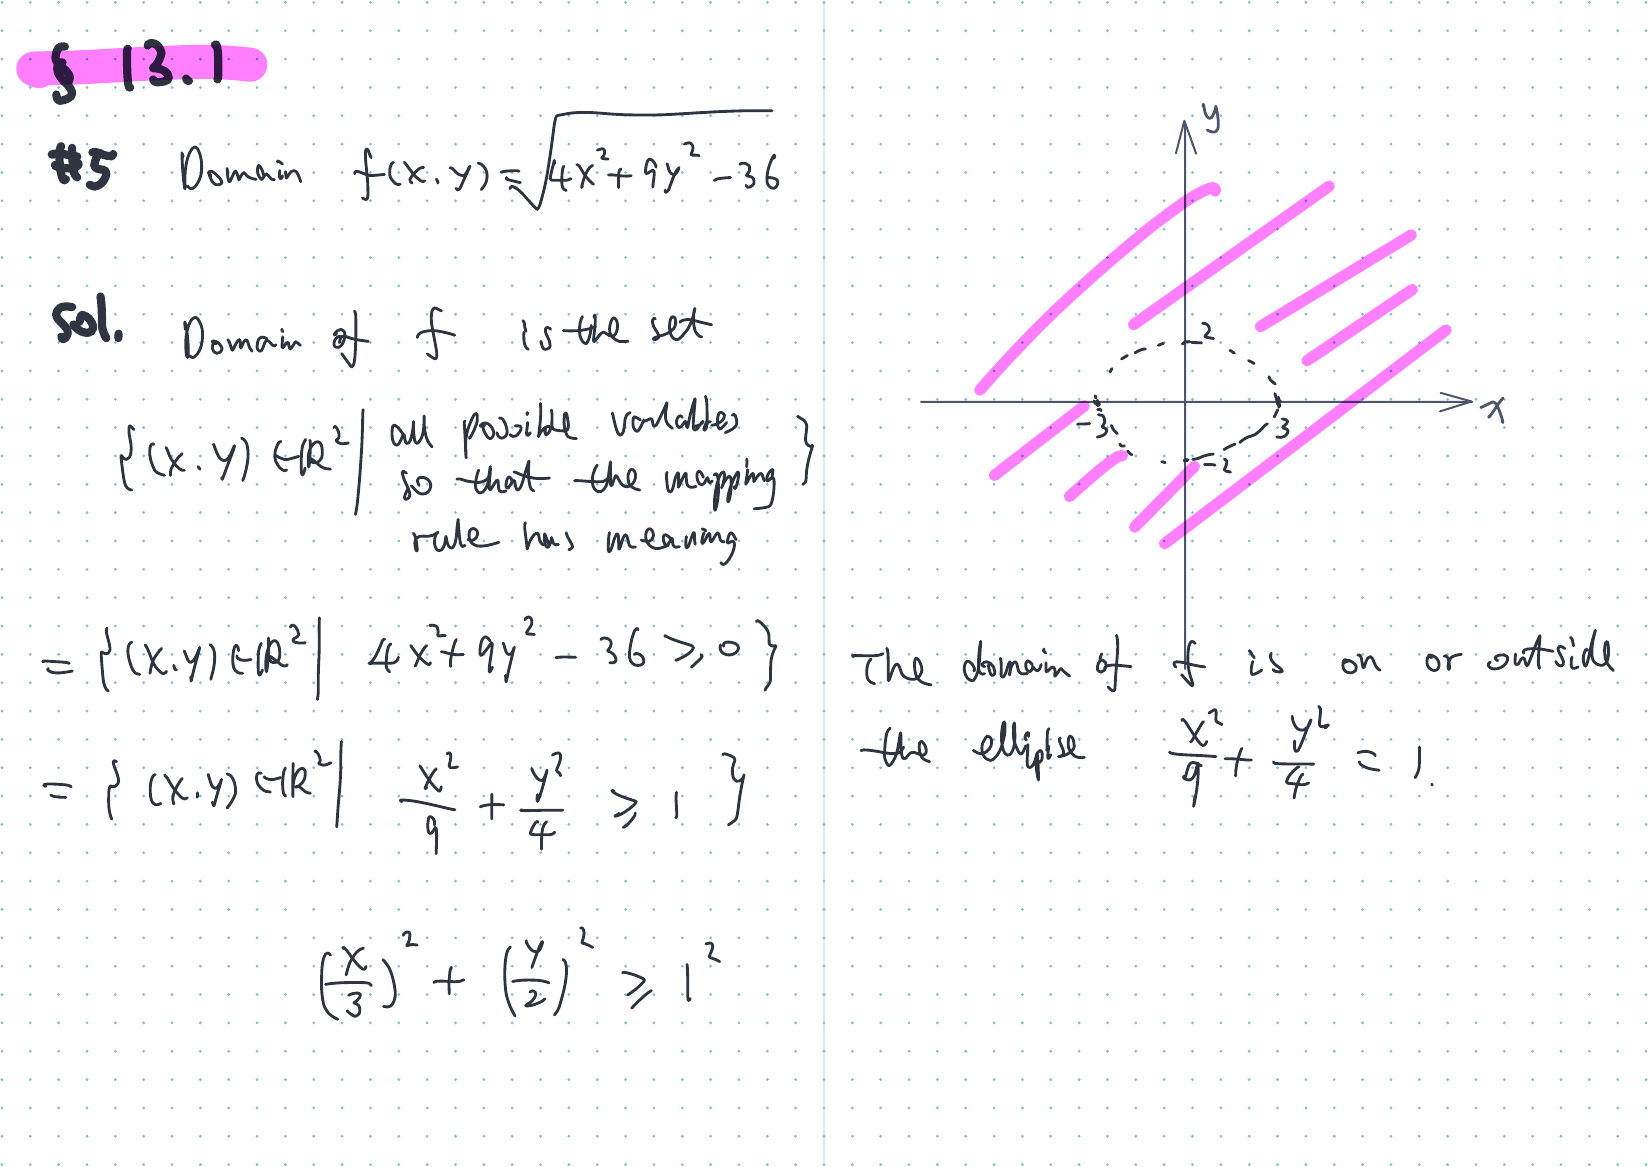 § 13.1
#5 Domain f(x.y) = √(4x²+9y²-36)
Sol. Domain of f is the set
{(x.y) ∈ ℝ² | all possible variables
so that the mapping }
rule has meaning
= {(x.y) ∈ ℝ² | 4x²+9y²-36 ≥ 0 }
= { (x.y) ∈ ℝ² | x²/9 + y²/4 ≥ 1 }
(x/3)² + (y/2)² ≥ 1²
y
2
x
-3
3
-2
The domain of f is on or outside
the elliplse x²/9 + y²/4 = 1.